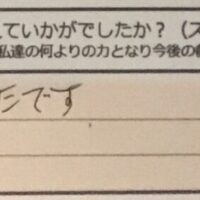 ていかがでしたか？（ス
私達の何よりの力となり今後の
たです